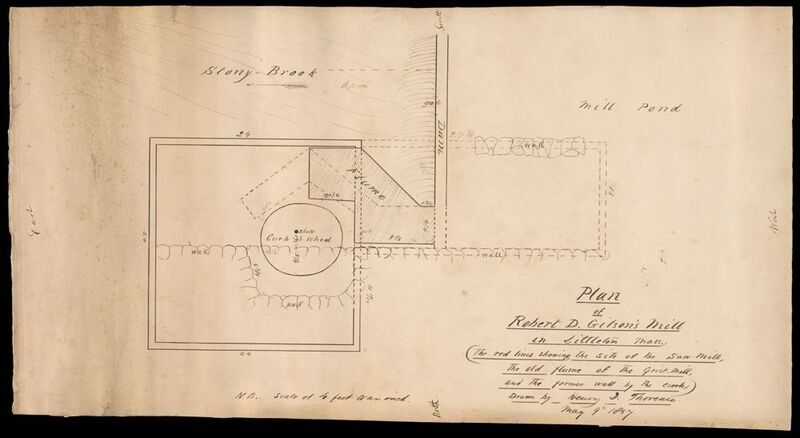 South
Stony-Brook
Apron
gate
Dam
Mill Pond
24
27 1/2
wall
Flume
gate
East
West
Shaft
Curb & Wheel
24
wall
wall
wall
24
Plan
of
Robert D. Gilson's Mill
in Littleton Mass.
(The red lines showing the site of the Saw Mill,
The old flume of the Grist-Mill,
and the former wall by the circle,)
Drawn by Henry D. Thoreau
May 9th 1857
N.B. Scale of 4 feet to an inch.
North